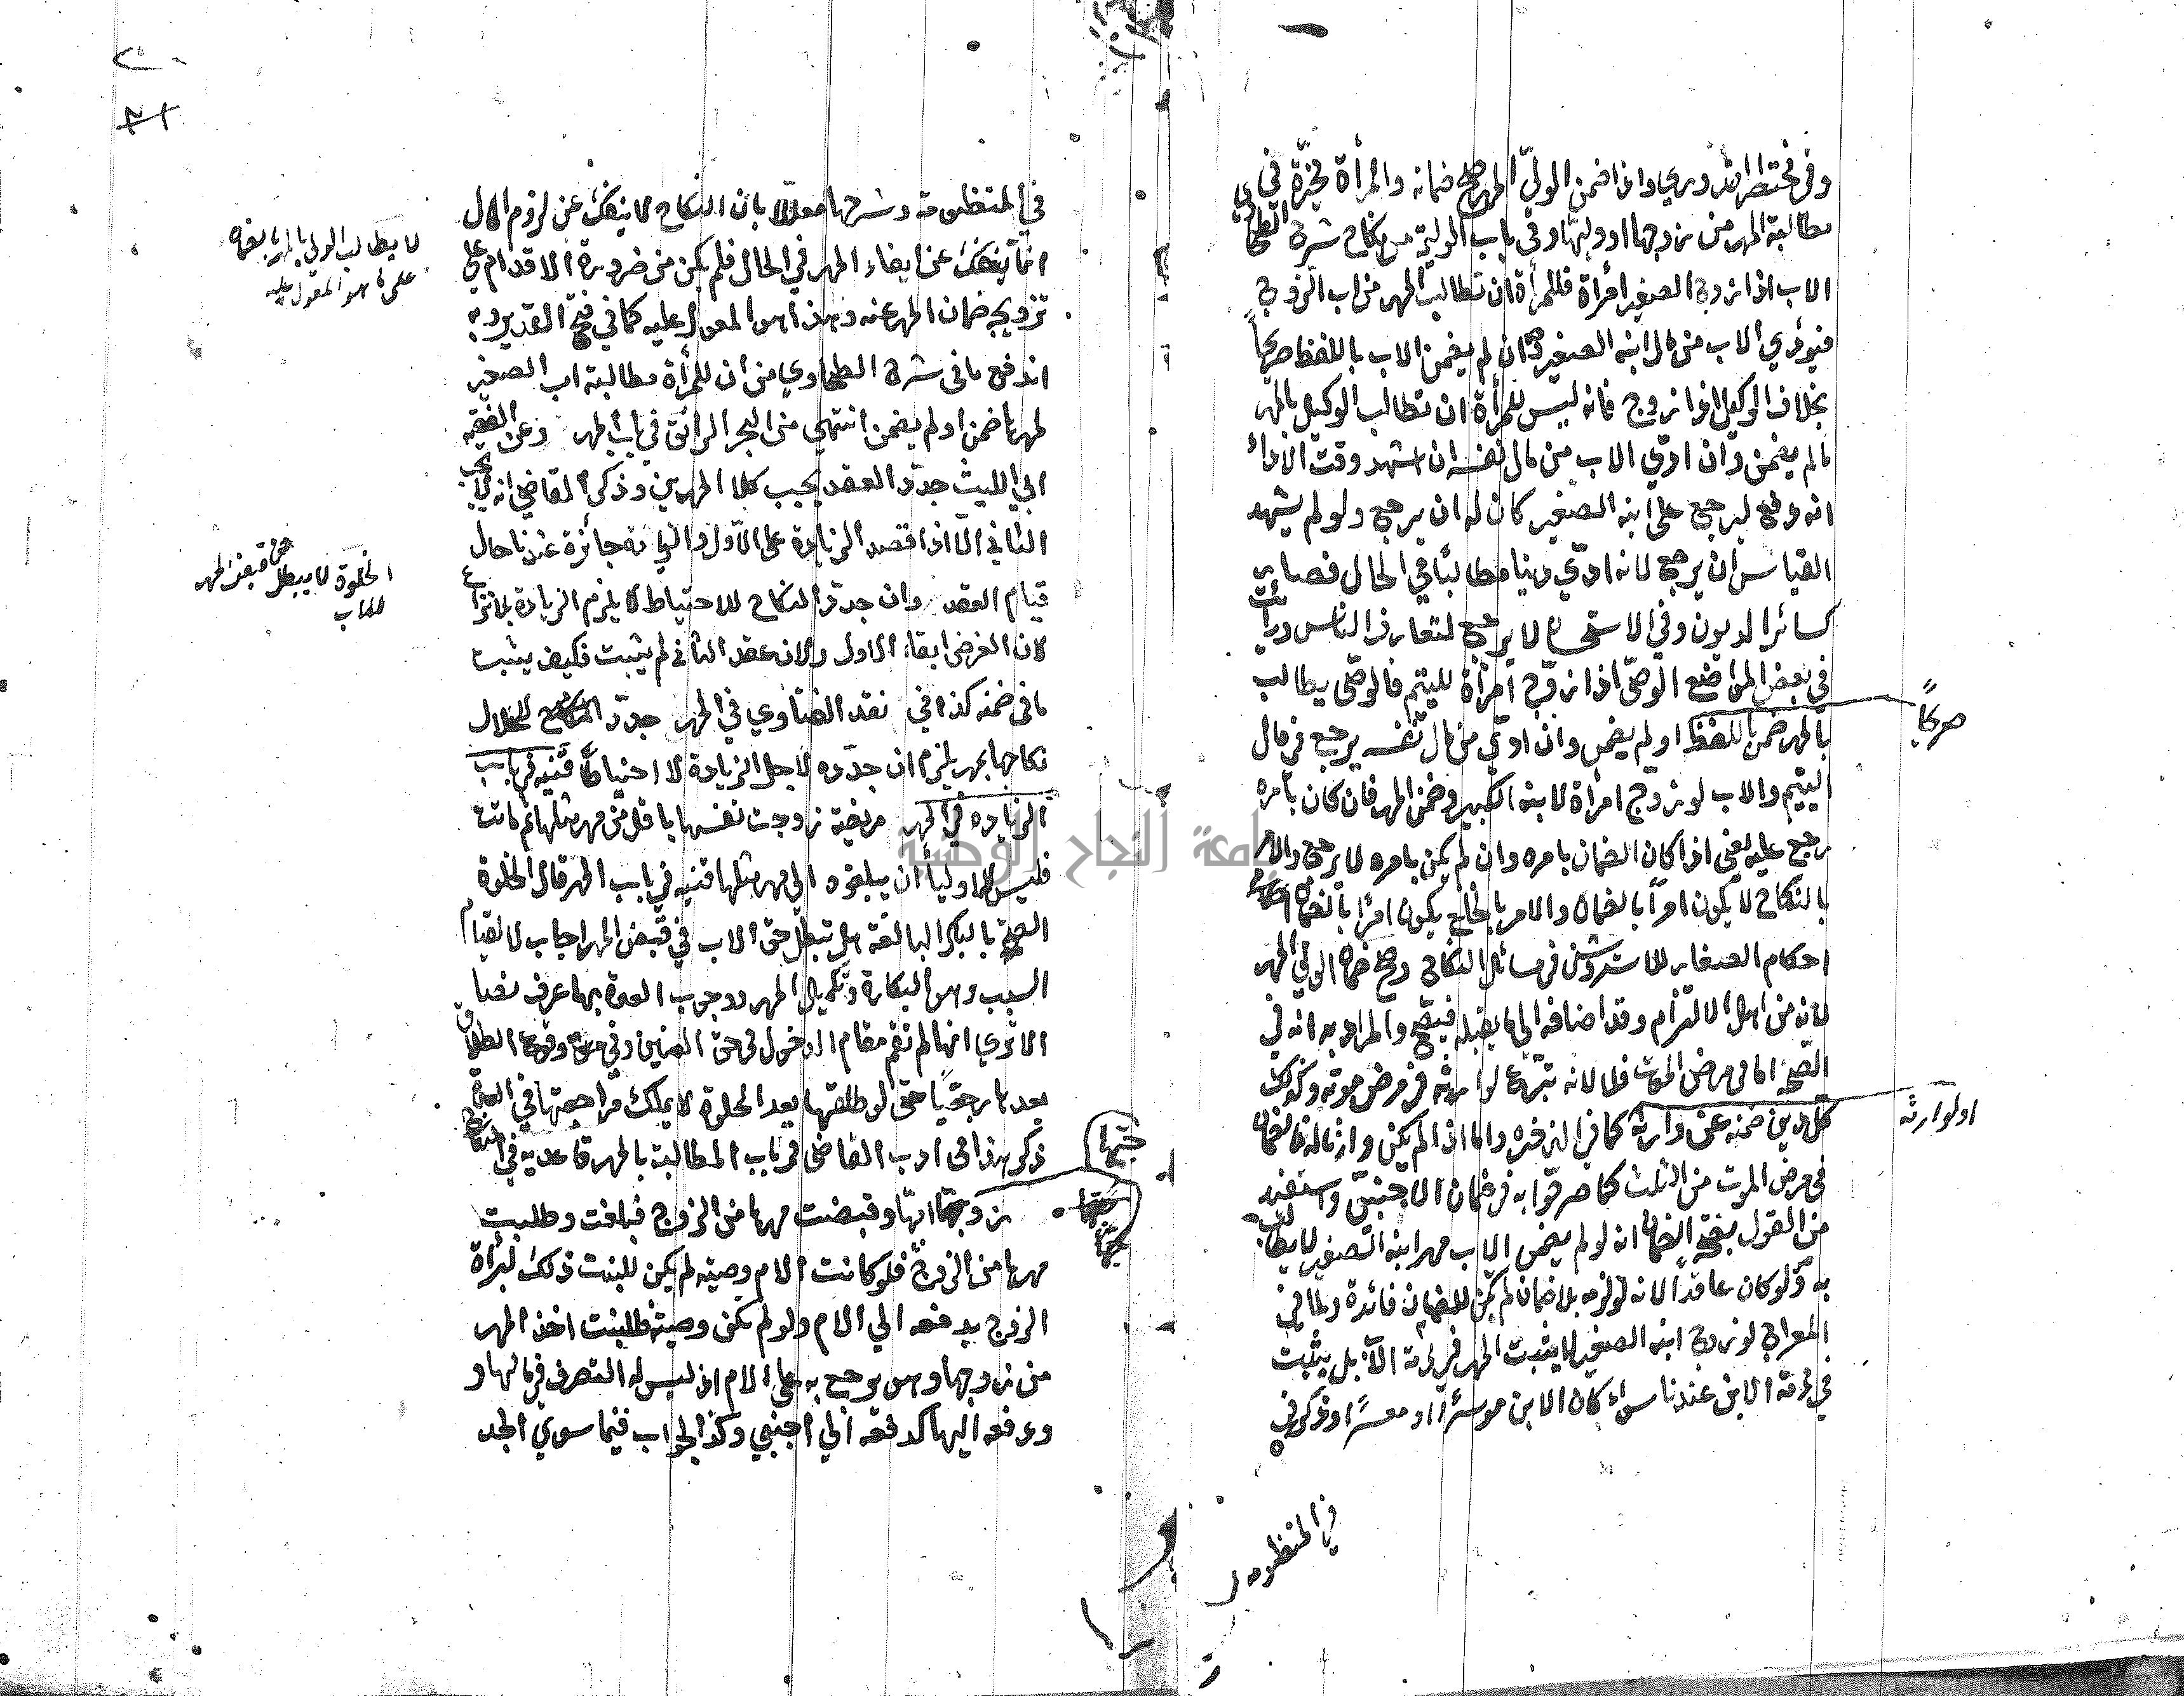 وفي مختصر القدوري واذا ضمن الولي المهر صح ضمانه والمرأة مخيرة في
مطالبة المهر من زوجها او وليها وفي باب الولية من نكاح شرح الطحاوي
الاب اذا زوج الصغير امرأة فللمرأة ان تطالب المهر من اب الزوج
فيؤدي الاب من مال ابنه الصغير وان لم يضمن الاب باللفظ صريحاً
بخلاف الوكيل اذا زوج فانه ليس للمرأة ان تطالب الوكيل بالمهر
مالم يضمن وان ادي الاب من مال نفسه ان اشهد وقت الاداء
انه دفع ليرجع على ابنه الصغير كان له ان يرجع ولو لم يشهد
القياس ان يرجع لانه ادي دينا مطالبا في الحال فصار
كسائر الديون وفي الاستحسان لا يرجع لتعارف الناس ورأيت
في بعض المواضع الوصي اذا زوج امرأة لليتيم فالوصي يطالب
صريحاً
بالمهر ضمن باللفظ او لم يضمن وان ادي من مال نفسه يرجع في مال
اليتيم والاب لو زوج امرأة لابنه الكبير وضمن المهر فان كان بامره
رجع عليه يعني اذا كان الضمان بامره وان لم يكن بامره لا يرجع والامر
بالنكاح لا يكون امراً بالضمان والامر بالخلع يكون امرا بالضمان
احكام الصغار للاستروشني في مسائل النكاح وصح ضمان الولي المهر
لانه من اهل الالتزام وقد اضافه الي ما يقبله فيصح والمراد به انه في
الصحة اما في مرض الموت فلا لانه تبرع لوارثه في مرض موته وكذلك
كل دين ضمنه عن وارثه كما في الذخيره واما اذا لم يكن وارثا له فالضمان
او لوارثه
في مرض الموت من الثلث كما صرحوا به في ضمان الاجنبي واستفيد
من القول بصحة الضمان انه لو لم يضمن الاب مهر ابنه الصغير لا يطالب
به ولو كان عاقداً لانه لو لزمه بلا ضمان لم يكن للضمان فائدة ولما في
المعراج لو زوج ابنه الصغير لا يثبت المهر في ذمة الاب بل يثبت
في ذمة الابن عندنا سواء كان الابن موسرًا او معسرًا وذكر في
في المنظومه
في المنظومة وشرحها معللا بان النكاح لا ينفك عن لزوم المال
انما ينفك عن ايفاء المهر في الحال فلم يكن من ضرورة الاقدام علي
تزويجه ضمان المهر عنه وهذا هو المعول عليه كما في فتح القدير وبه
اندفع ما في شرح الطحاوي من ان للمرأة مطالبة اب الصغير
لا يطالب الولي بالمهر بلا ضمان
على ما هو المعول عليه
لمهرها ضمن او لم يضمن انتهي من البحر الرائق في باب المهر وعن الفقيه
ابي الليث جدد العقد يجب كلا المهرين وذكر القاضي انه لا يجب
الثاني الا اذا قصد الزيادة على الاول والزيادة جائزة عندنا حال
قيام العقد وان جدد النكاح للاحتياط لا يلزم الزيادة بلا نزاع
الخلوة لا يبطل حق قبض المهر
للاب
لان الغرض ابقاء الاول ولان عقد الثاني لم يثبت فكيف يثبت
ما في ضمنه كذا في نقد الفتاوي في المهر جدد للحلال
نكاحها بمهر يلزم ان جدده لاجل الزيادة لا احتياطًا قنيه في باب
الزياده في المهر مريضة زوجت نفسها باقل من مهر مثلها ثم ماتت
فليس للاولياء ان يبلغوه الي مهر مثلها قنيه في باب المهر قال الخلوة
الصحيحة بالبكر البالغة هل تبطل حق الاب في قبض المهر اجاب لا لقيام
السبب وهو البكارة وتكميل المهر ووجوب العدة بها عرف نصا
الا تري انها لم تقم مقام الدخول في حق العنين وفي حق وقوع الطلاق
بعدها رجعيًا حتى لو طلقها بعد الخلوة لا يملك مراجعتها في العدة
ذكر هذا في ادب القاضي في باب المطالبة بالمهر قاعديه في النكاح
زوجتها امها وقبضت مهرها من الزوج فبلغت وطلبت
مهرها من الزوج فلو كانت الام وصيه لم يكن للبنت ذلك لبرأة
الزوج بدفعه الي الام ولو لم تكن وصية فللبنت اخذ المهر
من زوجها وهو يرجع به على الام اذ ليس له التصرف في مالها و
ودفعه اليها كدفعه الي اجنبي وكذا الجواب فيما سوي الجد
جامعة النجاح الوطنية